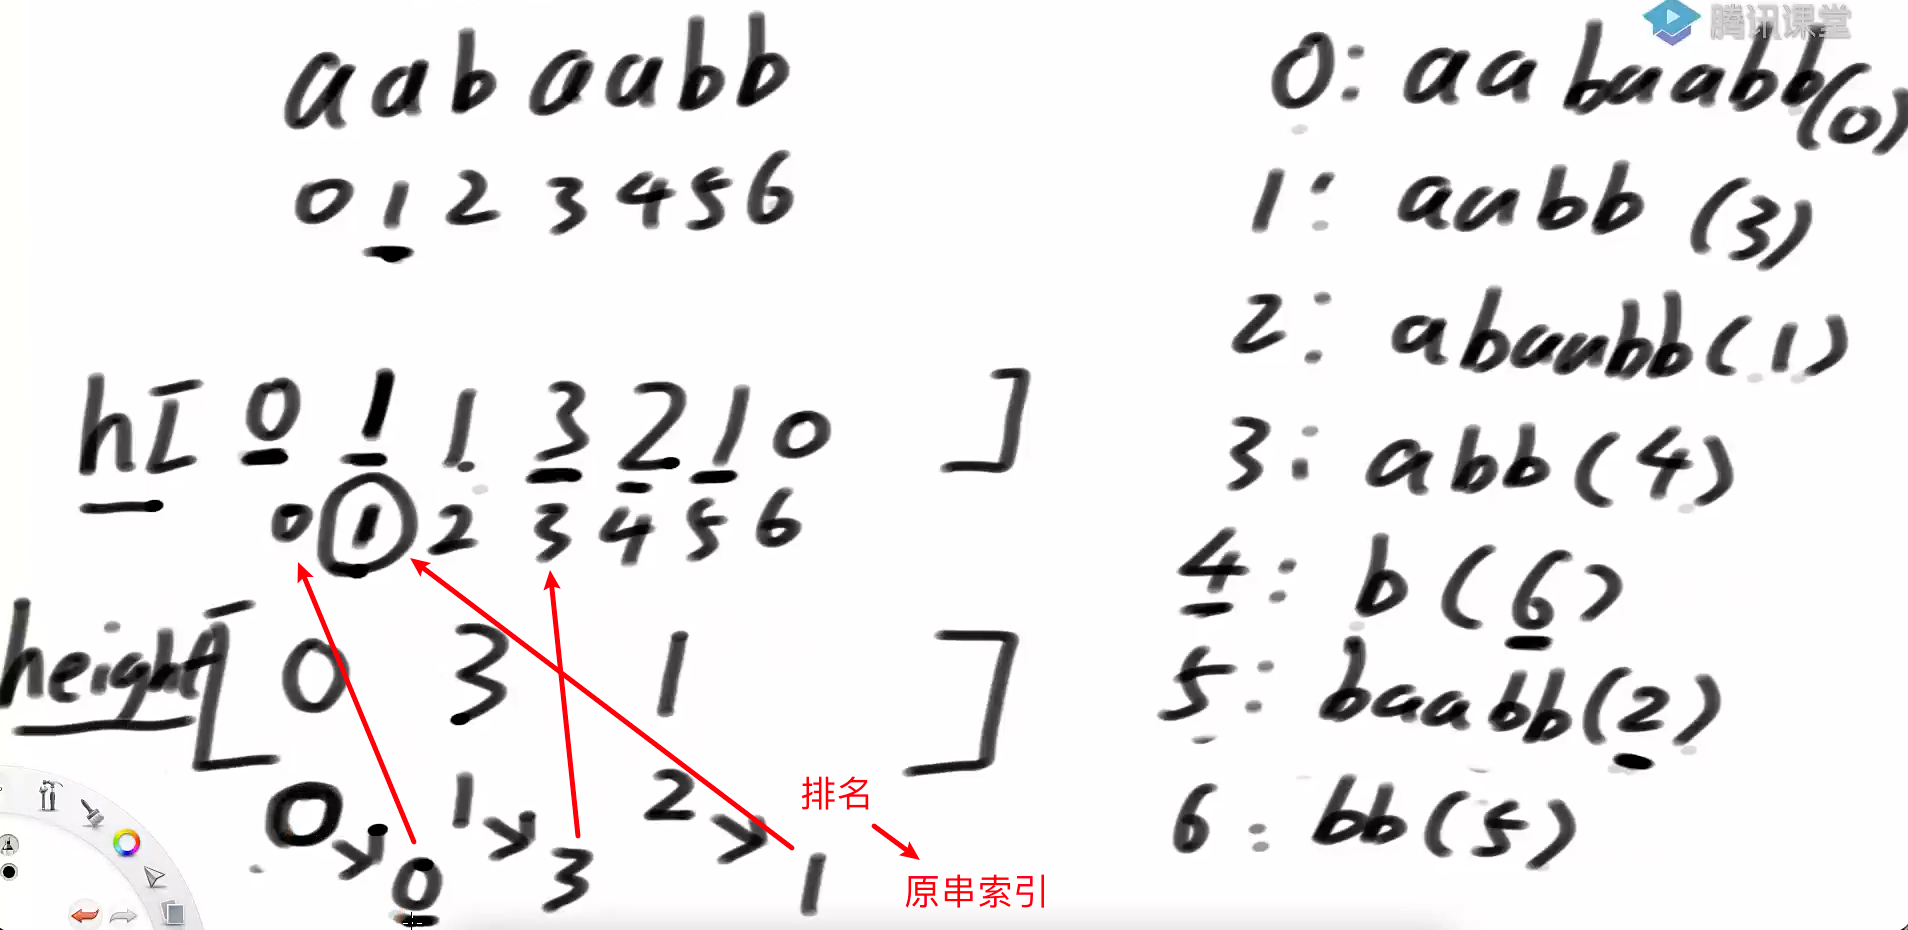 aabaabb
0 1 2 3 4 5 6
h[ 0 1 1 3 2 1 0 ]
0 1 2 3 4 5 6
height[ 0 3 1 ]
0 1 2
0 3 1
排名
原串索引
腾讯课堂
0: aabaabb(0)
1: aabb (3)
2: abaabb(1)
3: abb(4)
4: b(6)
5: baabb(2)
6: bb(5)